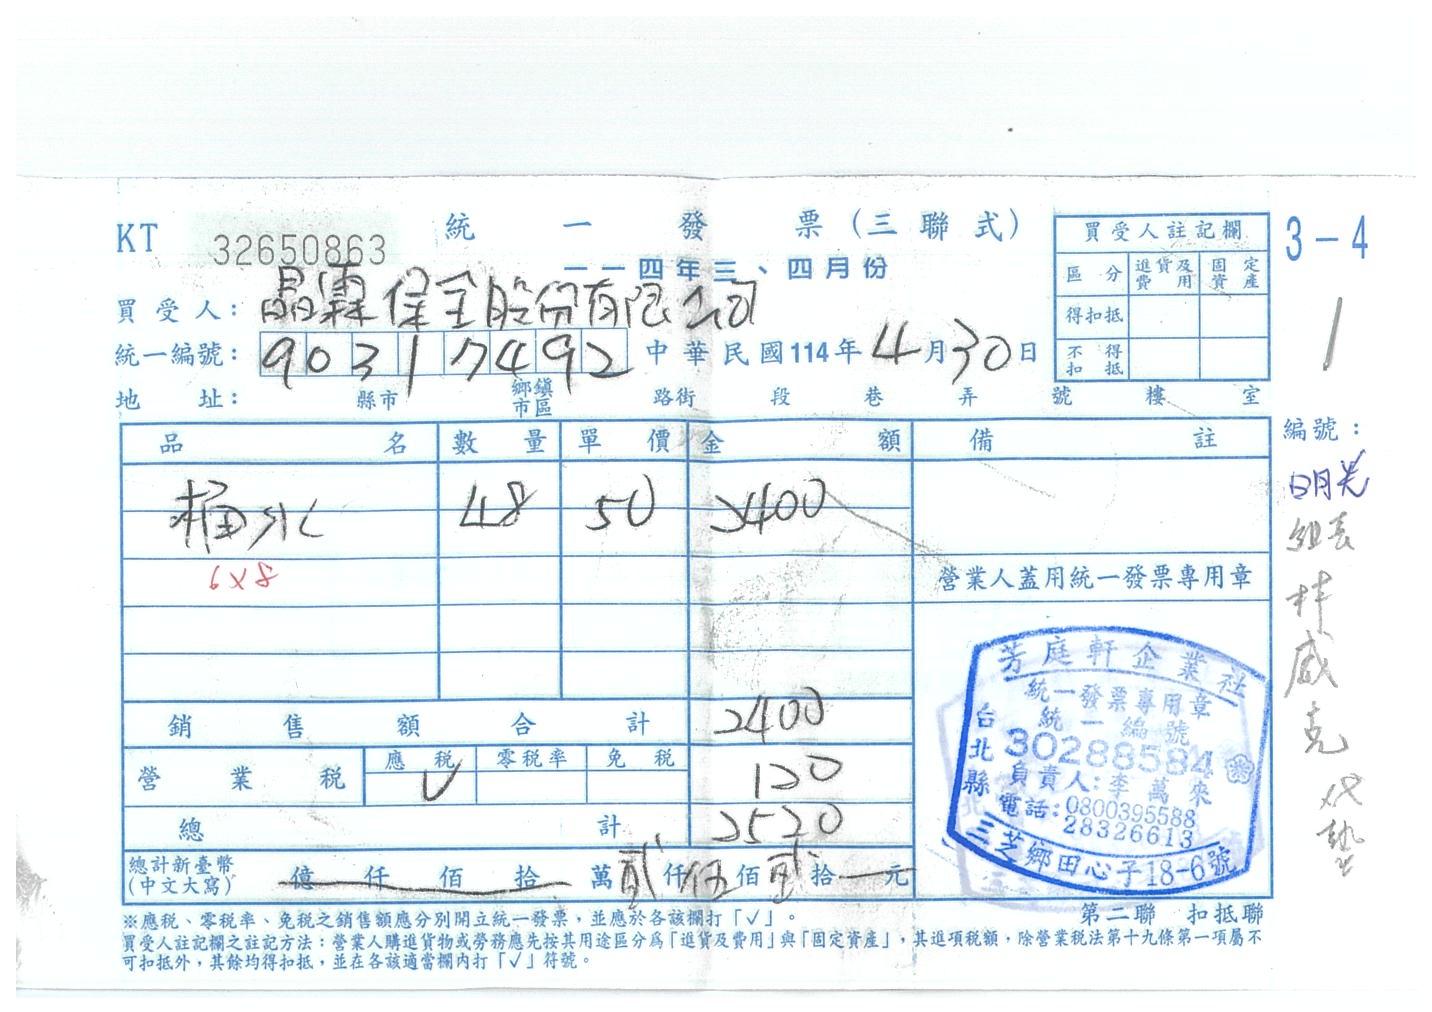 KT 32650863
統一發票(三聯式)
一一四年三、四月份
買受人註記欄
區分 進貨及費用 固定資產
得扣抵
不得扣抵
3-4
1
買受人: 晶霖保全股份有限公司
統一編號: 90317492 中華民國114年4月30日
地址: 縣市 鄉鎮市區 路街 段 巷 弄 號 樓 室
品名 數量 單價 金額 備註
桶水 48 50 2400
6×8
銷售額合計 2400
營業稅 應稅 V 零稅率 免稅 120
總計 2520
總計新臺幣(中文大寫) 億 仟 佰 拾 萬 貳 仟 伍 佰 貳 拾 元
營業人蓋用統一發票專用章
芳庭軒企業社
統一發票專用章
統一編號
台北縣
30288584
負責人:李萬來
電話:0800395588
28326613
三芝鄉田心子18-6號
編號:
明光
組長
威克
代墊
第二聯 扣抵聯
※應稅、零稅率、免稅之銷售額應分別開立統一發票,並應於各該欄打「✓」。
買受人註記欄之註記方法:營業人購進貨物或勞務應先按其用途區分為「進貨及費用」與「固定資產」,其進項稅額,除營業稅法第十九條第一項屬不
可扣抵外,其餘均得扣抵,並在各該適當欄內打「✓」符號。